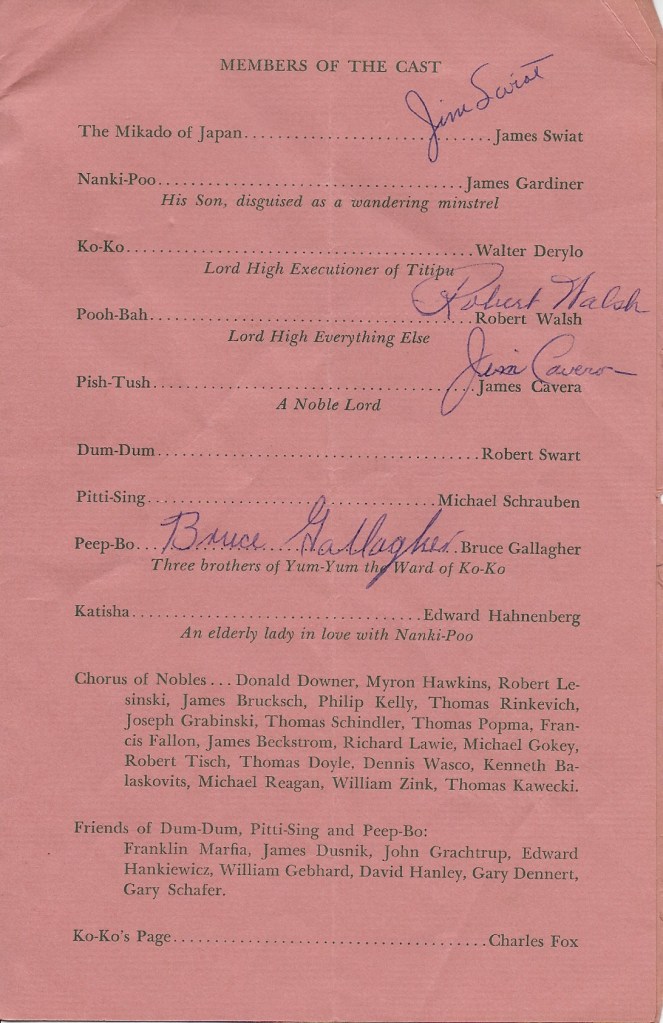 MEMBERS OF THE CAST
Jim Swiat
The Mikado of Japan..............................James Swiat
Nanki-Poo.......................................James Gardiner
His Son, disguised as a wandering minstrel
Ko-Ko............................................Walter Derylo
Lord High Executioner of Titipu
Robert Walsh
Pooh-Bah.........................................Robert Walsh
Lord High Everything Else
Jim Cavera
Pish-Tush........................................James Cavera
A Noble Lord
Dum-Dum.........................................Robert Swart
Pitti-Sing....................................Michael Schrauben
Bruce Gallagher
Peep-Bo.......................................Bruce Gallagher
Three brothers of Yum-Yum the Ward of Ko-Ko
Katisha......................................Edward Hahnenberg
An elderly lady in love with Nanki-Poo
Chorus of Nobles...Donald Downer, Myron Hawkins, Robert Le-
sinski, James Brucksch, Philip Kelly, Thomas Rinkevich,
Joseph Grabinski, Thomas Schindler, Thomas Popma, Fran-
cis Fallon, James Beckstrom, Richard Lawie, Michael Gokey,
Robert Tisch, Thomas Doyle, Dennis Wasco, Kenneth Ba-
laskovits, Michael Reagan, William Zink, Thomas Kawecki.
Friends of Dum-Dum, Pitti-Sing and Peep-Bo:
Franklin Marfia, James Dusnik, John Grachtrup, Edward
Hankiewicz, William Gebhard, David Hanley, Gary Dennert,
Gary Schafer.
Ko-Ko's Page.....................................Charles Fox